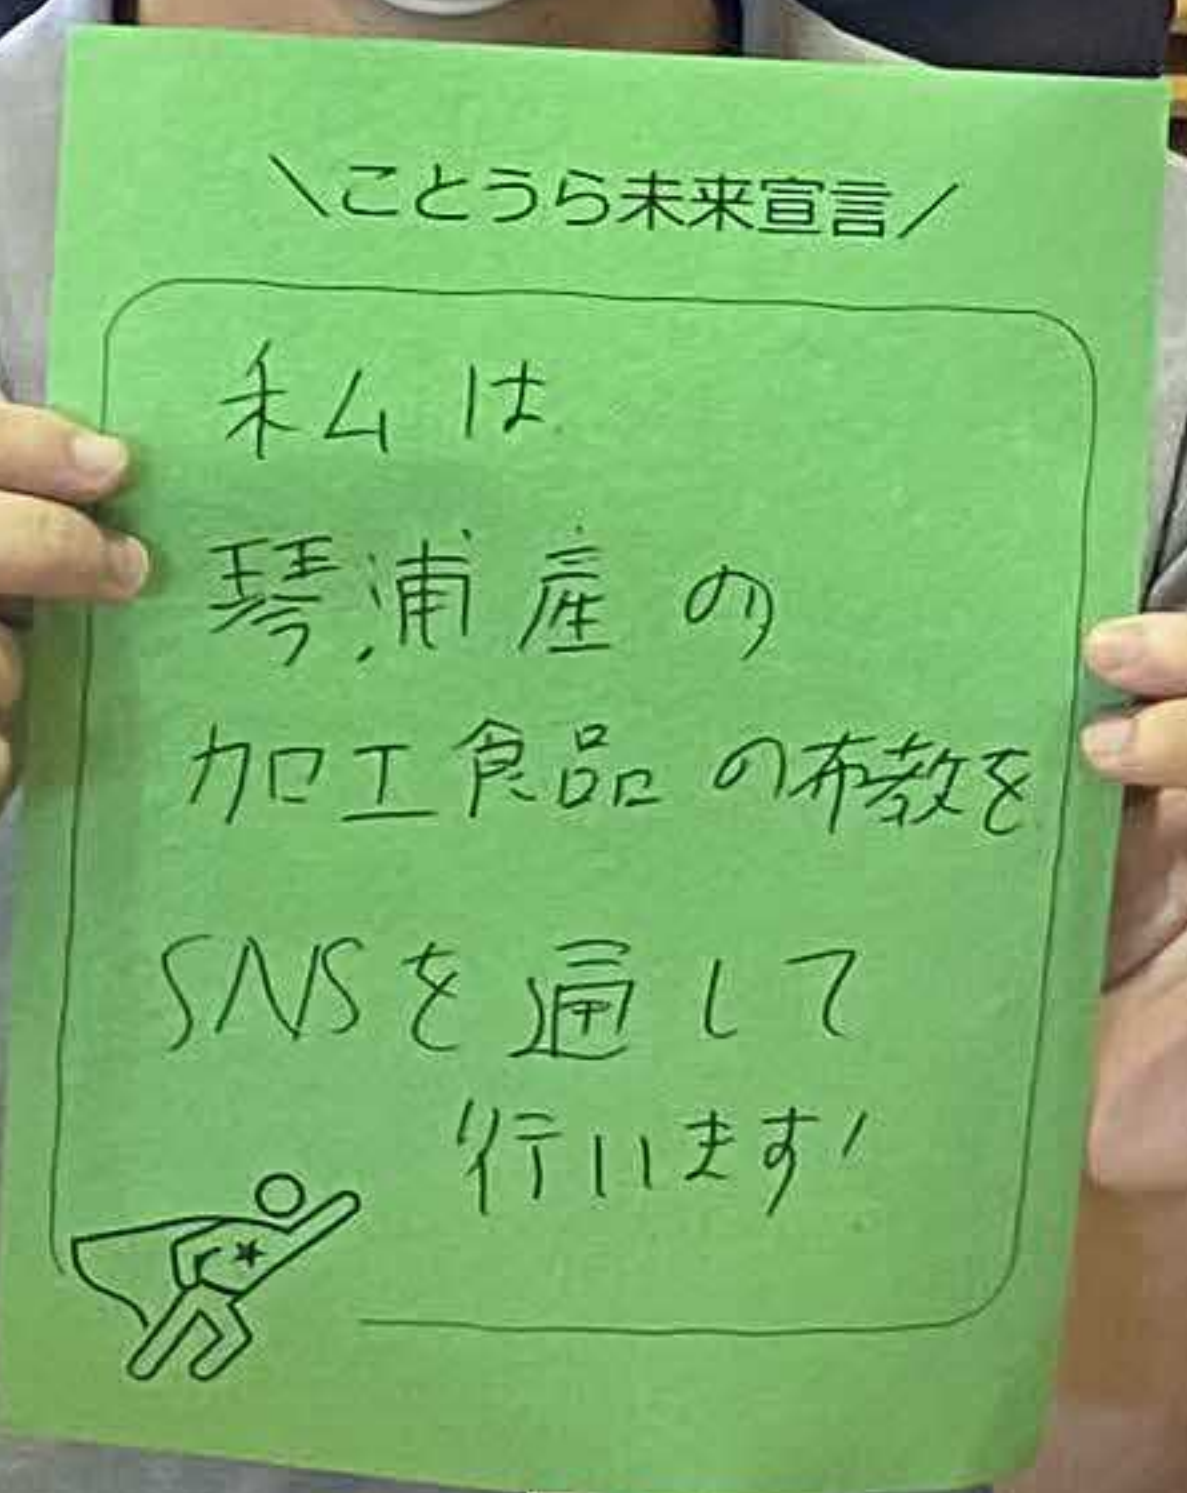 \ことうら未来宣言/
私は
琴浦産の
加工食品の布教を
SNSを通して
行います!